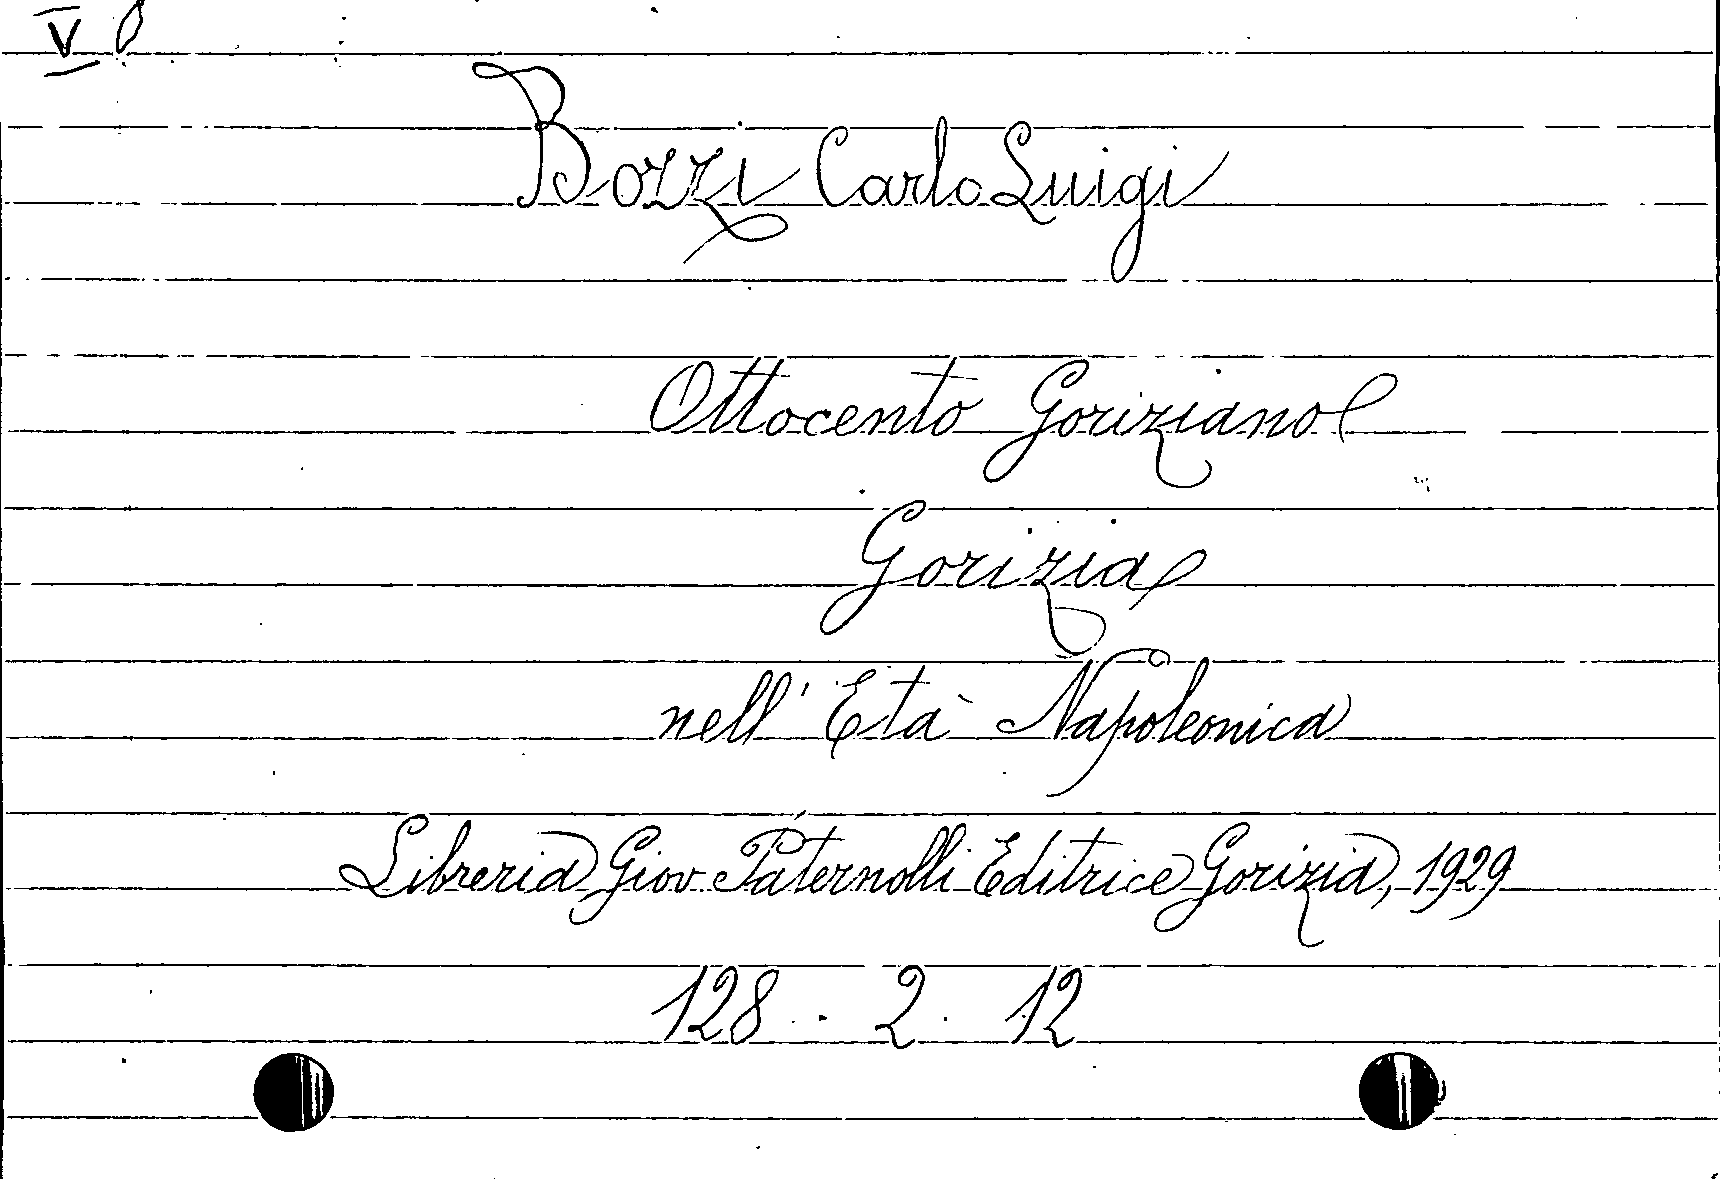 V
Bozzi Carlo Luigi
Ottocento Goriziano
Gorizia
nell' Età Napoleonica
Libreria Giov Paternolli Editrice Gorizia, 1929
128 . 2 . 12